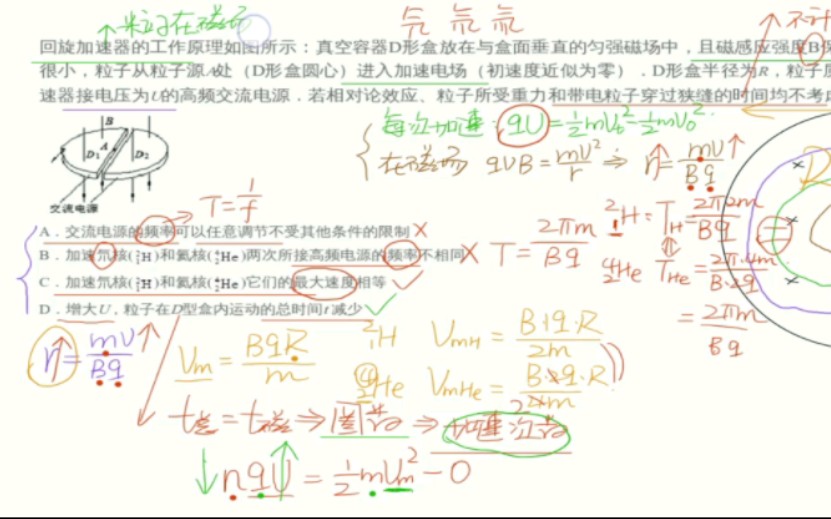 粒子在磁场
氕 氘 氚
不计
回旋加速器的工作原理如图所示：真空容器D形盒放在与盒面垂直的匀强磁场中，且磁感应强度B保
很小，粒子从粒子源A处（D形盒圆心）进入加速电场（初速度近似为零）．D形盒半径为R，粒子质
速器接电压为U的高频交流电源．若相对论效应、粒子所受重力和带电粒子穿过狭缝的时间均不考虑
每次加速：qU=½mv₀²-½mv₀²
在磁场 qvB=mv²/r ⇒ r=mv/Bq
B
D₁ A D₂
交流电源
T=1/f
A．交流电源的频率可以任意调节不受其他条件的限制 ×
B．加速氘核(²₁H)和氦核(⁴₂He)两次所接高频电源的频率不相同 ×
C．加速氘核(²₁H)和氦核(⁴₂He)它们的最大速度相等 ✓
D．增大U，粒子在D型盒内运动的总时间t减少 ✓
T=2πm/Bq
²₁H: T_H=2π2m/Bq
⁴₂He T_He=2π·4m/B·2q
=2πm/Bq
r=mv/Bq
Vm=BqR/m
²₁H V_mH=B·q·R/2m
⁴₂He V_mHe=B·2q·R/4m
t总=t磁⇒圈数⇒加速次数
nqU=½mVm²-0